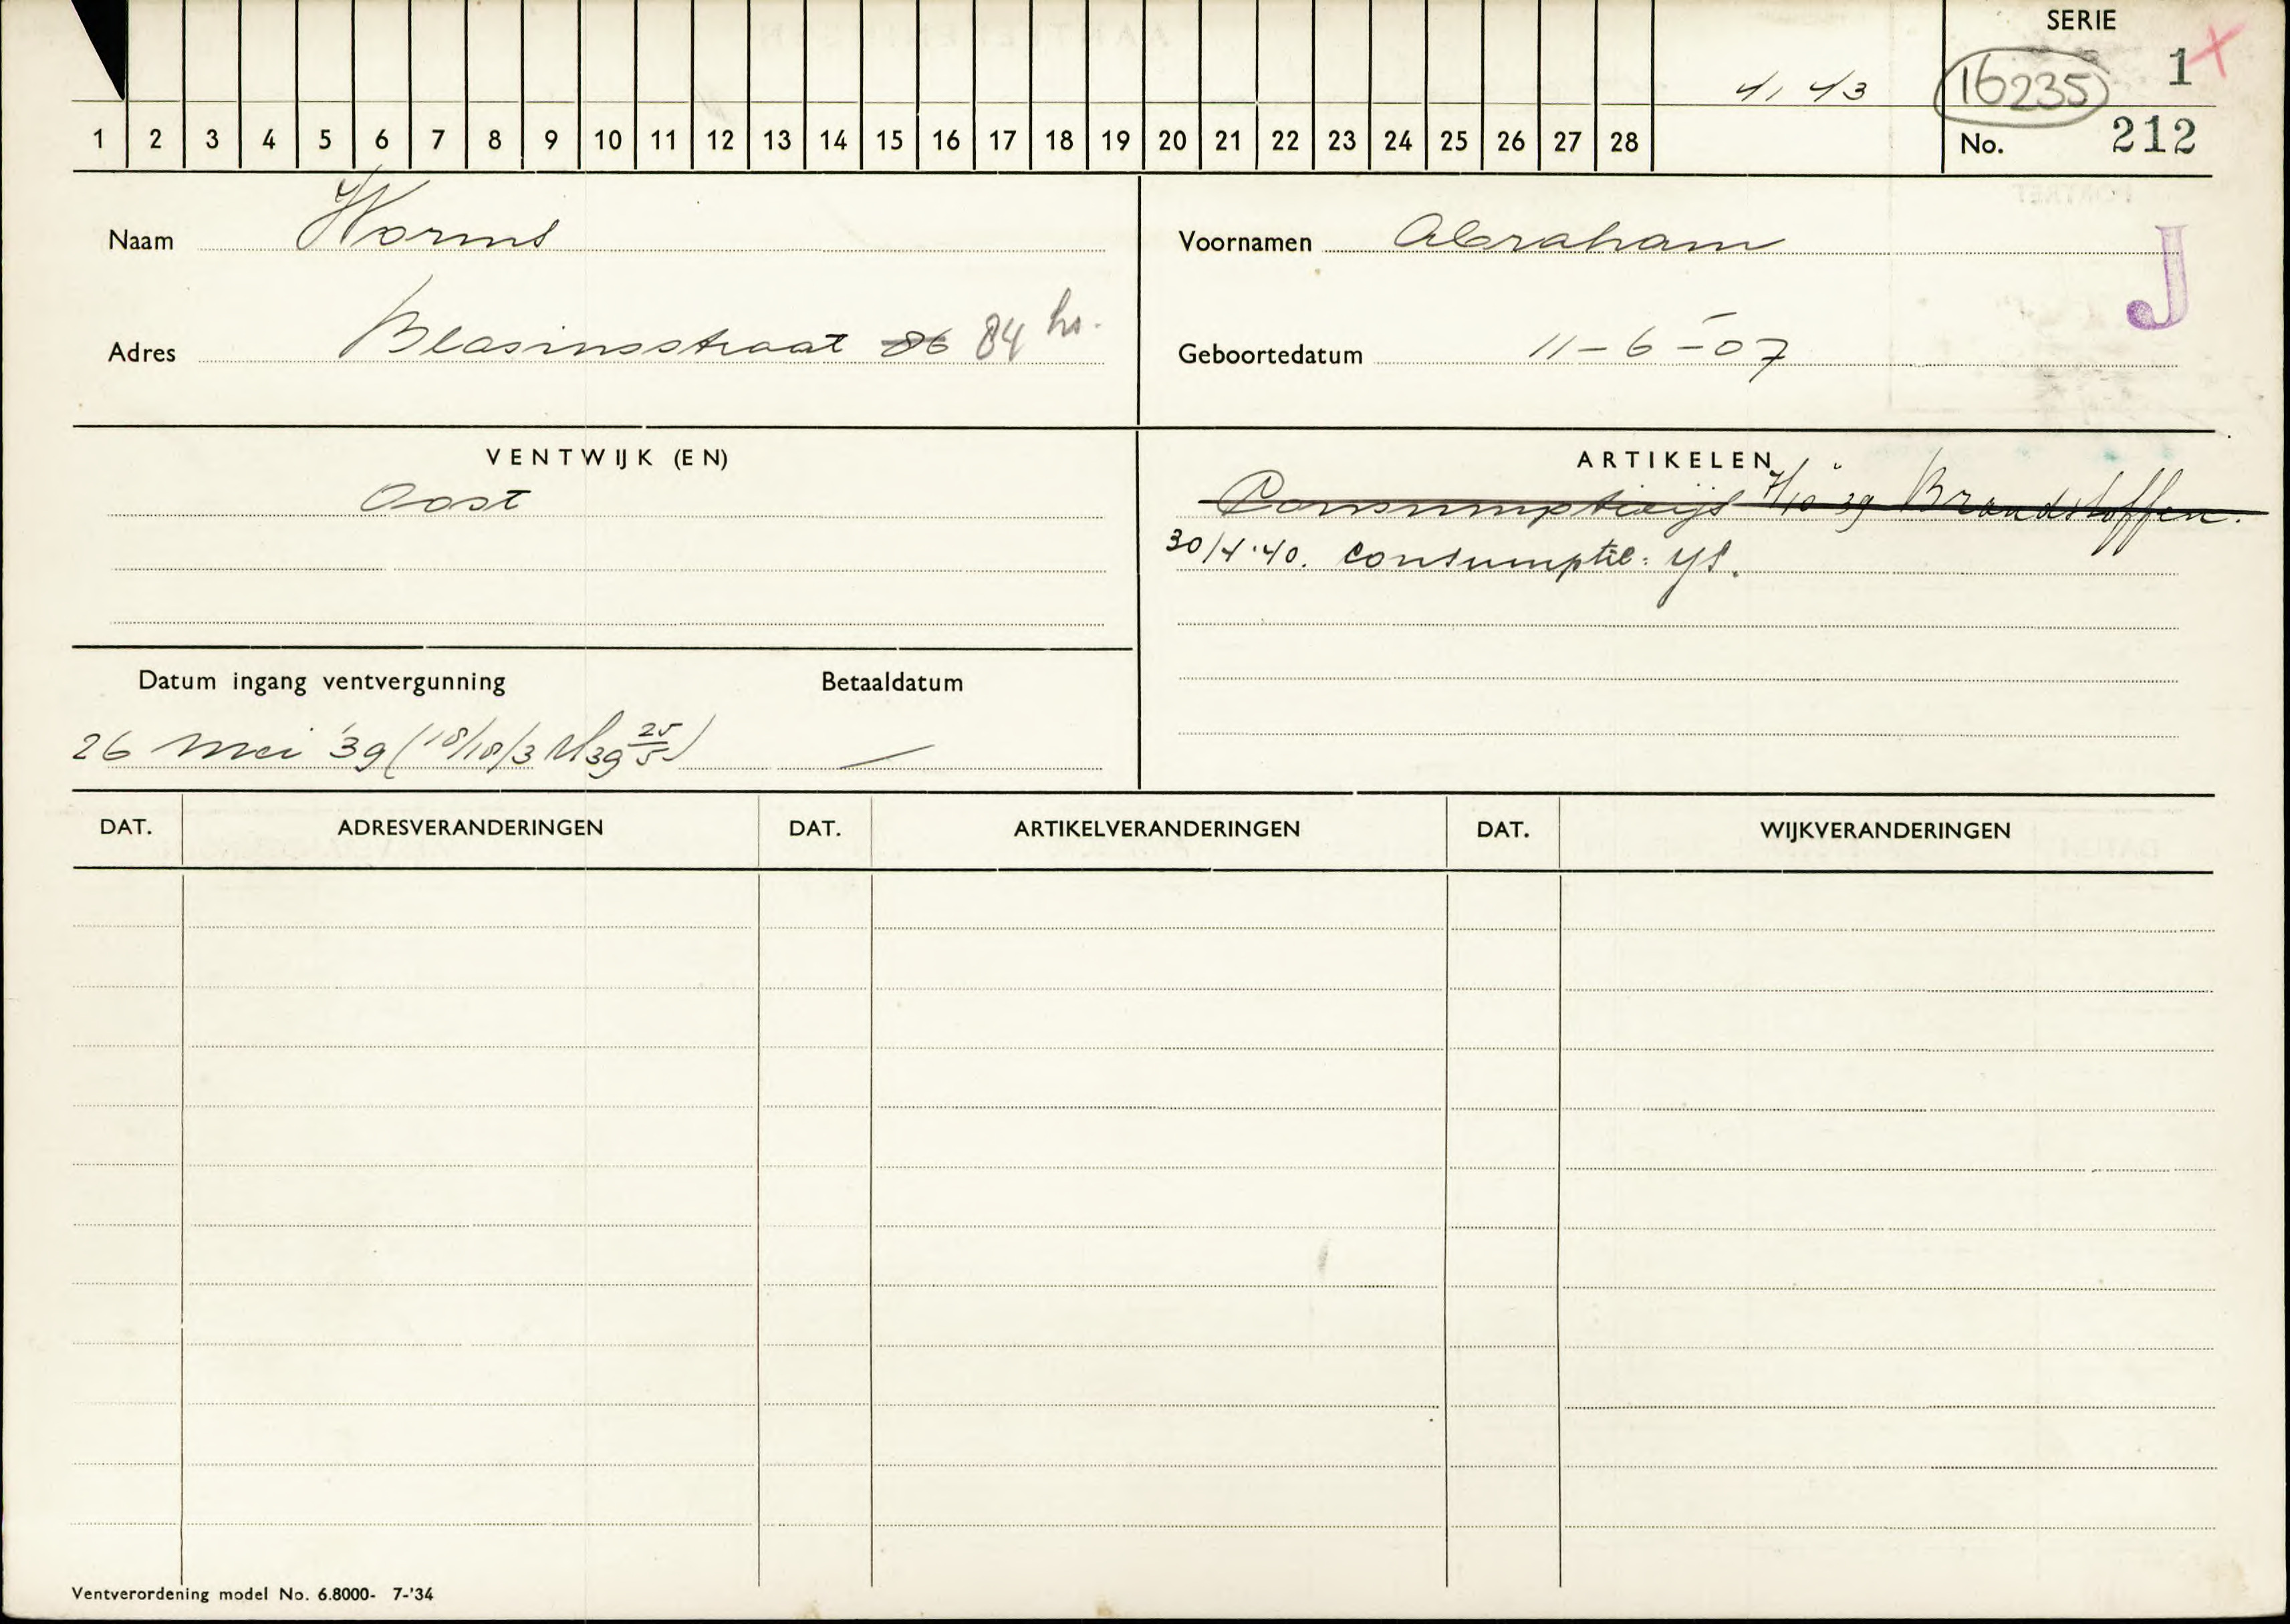 SERIE
1
4, 43
16235
1 2 3 4 5 6 7 8 9 10 11 12 13 14 15 16 17 18 19 20 21 22 23 24 25 26 27 28
No. 212
Naam Worms
Voornamen Abraham
J
Adres Blasiusstraat 86 84 hs.
Geboortedatum 11-6-07
VENTWIJK (EN)
Oost
ARTIKELEN
Consumptieijs 7/10 39 Brandstoffen.
30/4.'40. consumptie: ys.
Datum ingang ventvergunning Betaaldatum
26 Mei '39 (18/18/3 39 25/5) —
DAT. ADRESVERANDERINGEN DAT. ARTIKELVERANDERINGEN DAT. WIJKVERANDERINGEN
Ventverordening model No. 6.8000- 7-'34